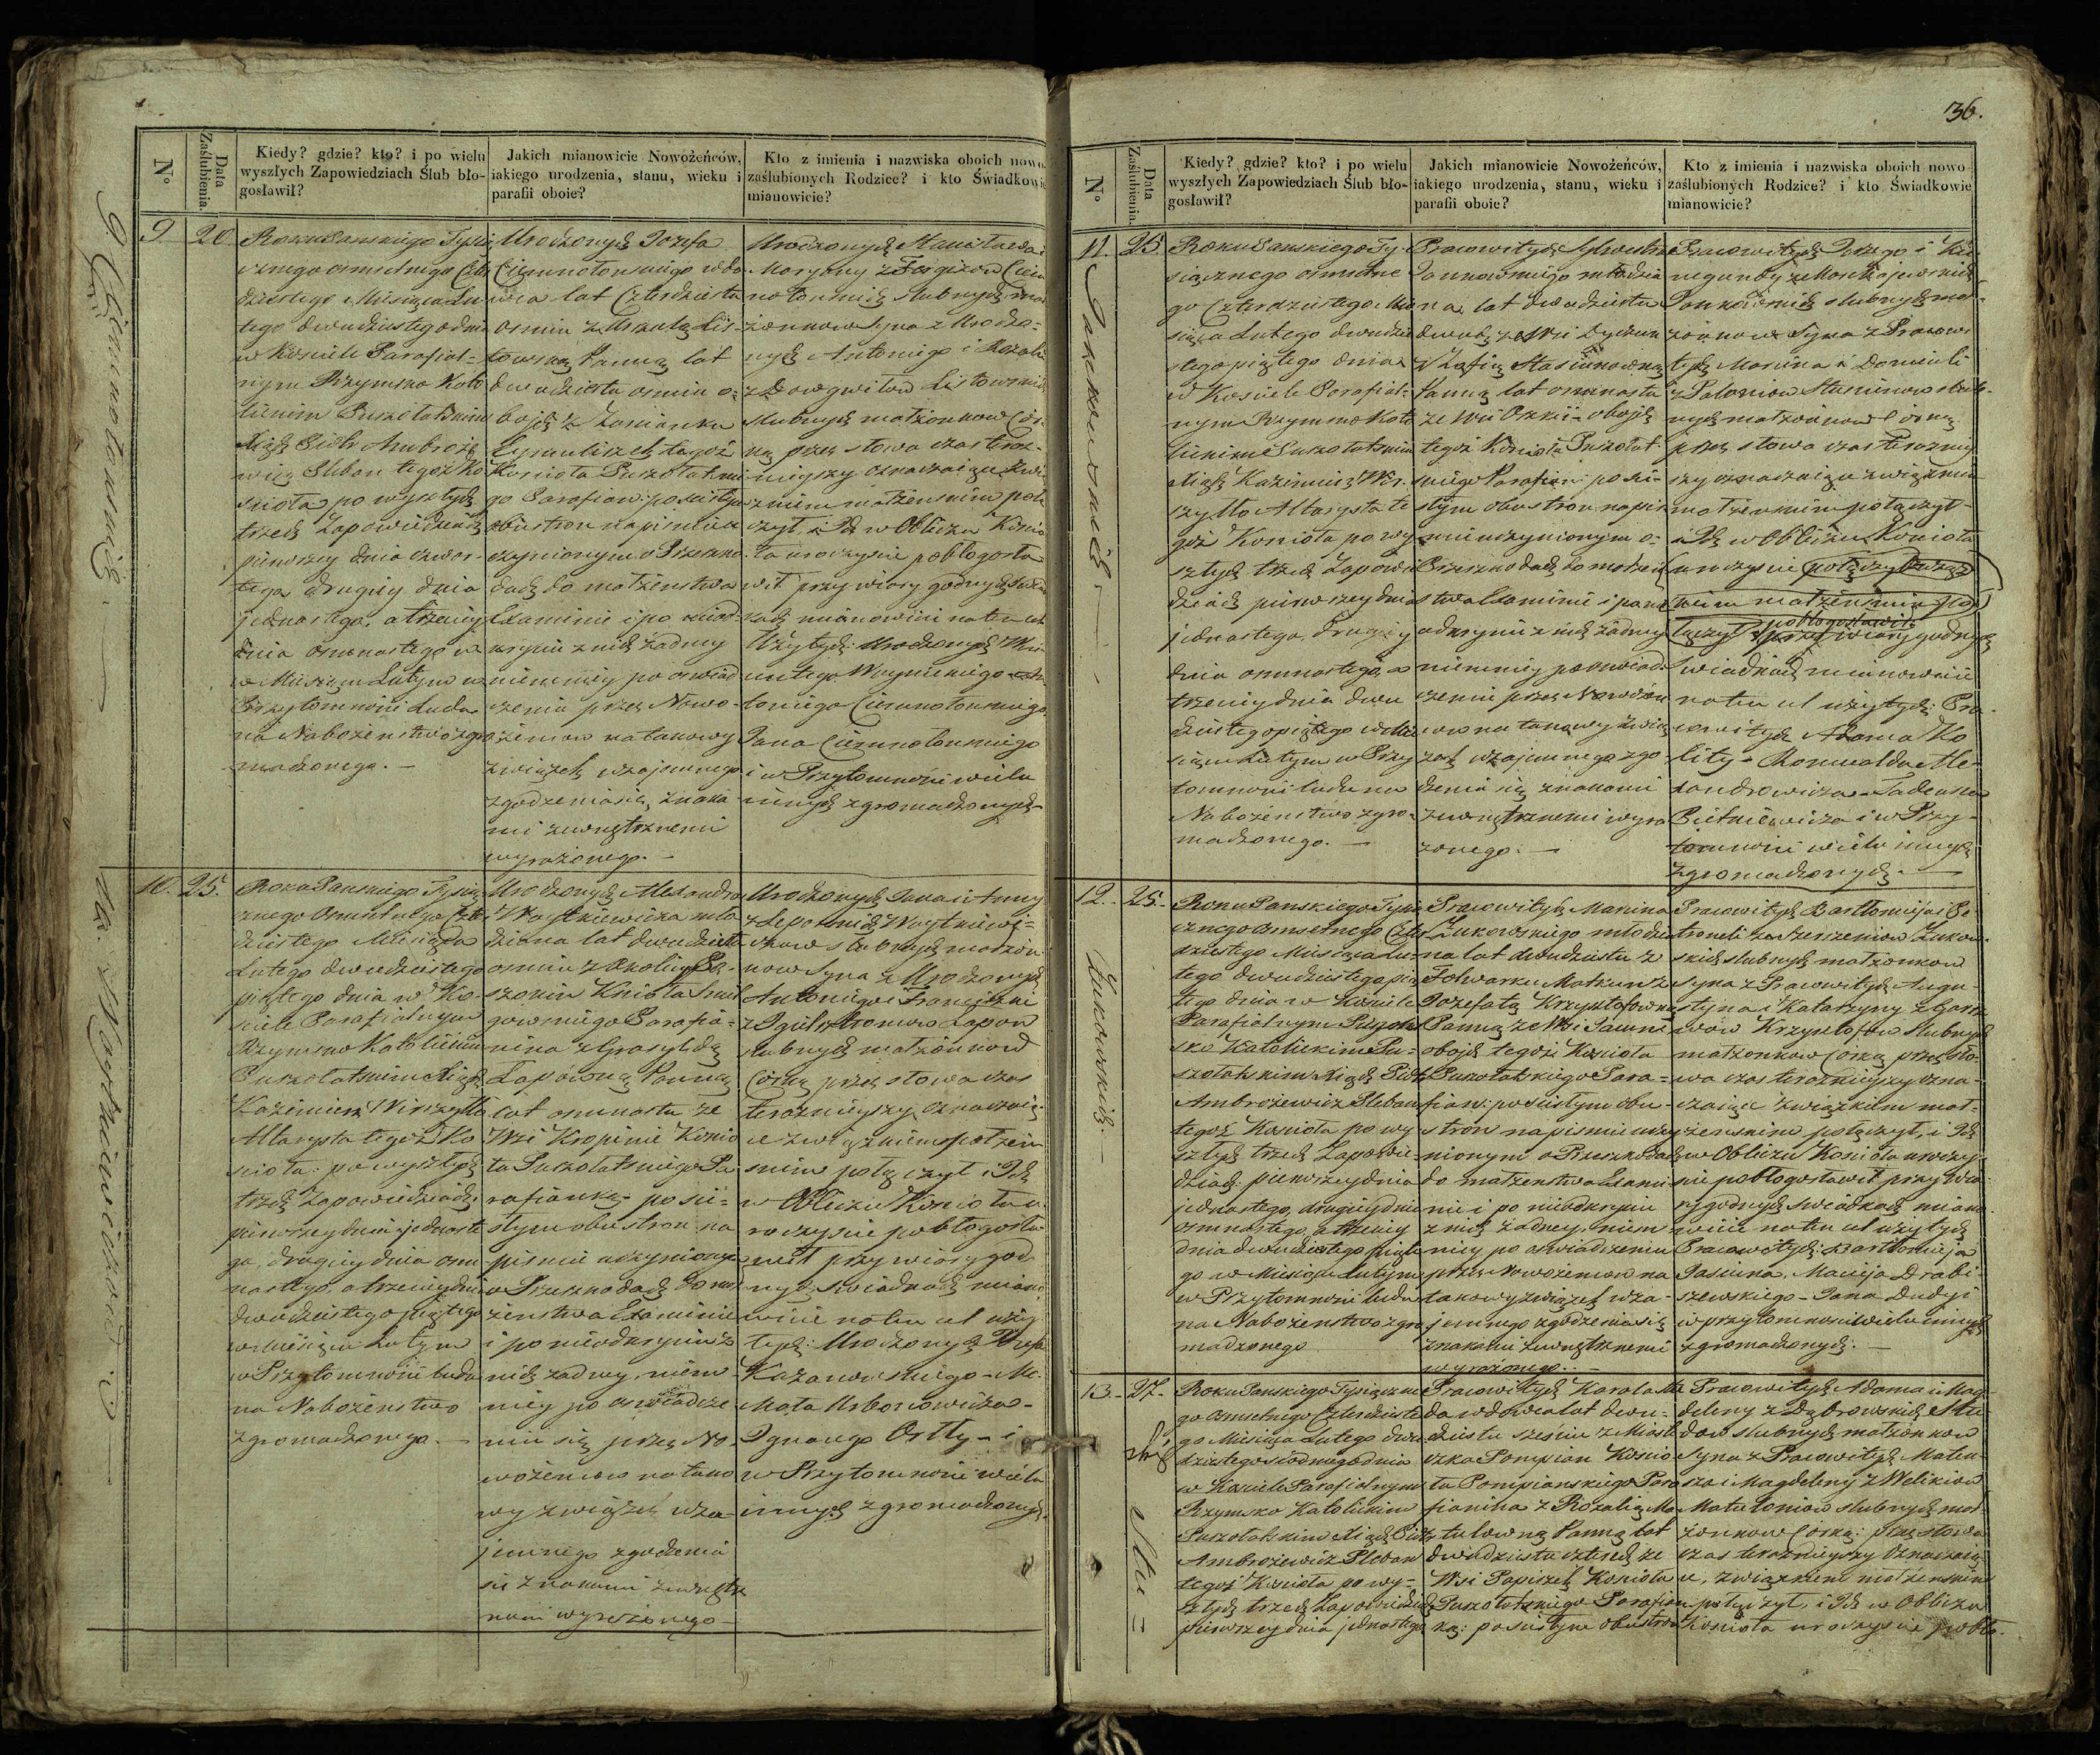 36.
N°
Data Zaślubienia.
Kiedy? gdzie? kto? i po wielu
wyszłych Zapowiedziach Ślub bło-
gosławił?
Jakich mianowicie Nowożeńców,
iakiego urodzenia, stanu, wieku i
parafii oboie?
Kto z imienia i nazwiska oboich nowo
zaślubionych Rodzice? i kto Świadkowie
mianowicie?
9
20
Roku Panskiego Tysią
cznego osmsetnego Czter
dziestego Miesiąca Lu
tego dwudziestego dnia
w Kosciele Parafial-
nym Rzymsko Kato
lickim Puszołatskim
Xiądz Piotr Ambroże
wicz Pleban tegoż Ko
scioła po wyszłych
trzech Zapowiedziach
pierwszey dnia czwar-
tego, drugiey dnia
jednastego, a trzeciey
dnia osmnastego
w Miesiącu Lutym w
Przytomnosci Ludu
na Nabożenstwo zgro
madzonego. -
Urodzonych Jozefa
Ciemnołonskiego wdo
wca lat Czterdziestu
osmiu z Urszulą Lis-
towską Panną lat
dwudziestu osmiu o-
bojch z Zascianku
tegoż
Koscioła Puszołatskie
go Parafian: po scisłym
obustron na pismie u
czynionym o Przeszko
dach do małżenstwa
Examinie i po nieod-
kryciu z nich żadney
niemniey po oswiad
czeniu przez Nowo-
żencow na takowy
związek wzajemnego
zgodzenia się, znaka
mi zewnętrznemi
wyrażonego. -
Urodzonych Stanisława i
Maryany z
slubnych mał
żonkow Syna z Urodzo-
nych Antoniego i Rozalii
z Dowgwiłow Listowskich
slubnych małżonkow Cor
ką przez słowa czas teraz-
nieyszy oznaczaiące Zwi
zkiem małżenskim połą
czył, i Ich w Obliczu Koscio
ła uroczyscie pobłogosła
wił przy wiary godnych Swiad
kach mianowicie na ten cel
Użytych: Urodzonych Win
centego Woynickiego - An
toniego Ciemnołonskiego
Jana Ciemnołonskiego
i w Przytomnosci wielu
innych zgromadzonych -
9 Ciemnołonskich
10.
25.
Roku Panskiego Tysią
cznego Osmsetnego Czter
dziestego Miesiąca
Lutego dwudziestego
piątego dnia w Ko-
sciele Parafialnym
Rzymsko Katolickim
Puszołatskim Xiądz
Kazimierz Wirszyłło
Altarysta tegoż Ko
scioła: po wyszłych
trzech Zapowiedziach:
pierwszey dnia jednaste
go, drugiey dnia osm
nastego, a trzeciey dnia
dwudziestego piątego
w miesiącu Lutym
w Przytomnosci Ludu
na Nabożenstwo
zgromadzonego. -
Urodzonych Alexandra
Woytkiewicza mło
dziana lat dwudziestu
osmiu z okolicy
Koscioła Smil
gowskiego Parafia-
nina z Grasyldą
Łapowną Panną
lat osmnastu ze
Wsi Kropinie Koscio
ła Puszołatskiego Pa
rafianką - po sci-
słym obustron na
pismie uczynionym
o Przeszkodach do mał
żenstwa Examinie
i po nieodkryciu z
nich żadney, niem
niey po oswiadcze
niu się przez No-
wożencow na tako
wy związek wza-
jemnego zgodzenia
się znakami zewnętrz
nemi wyrażonego -
Urodzonych Jana i Anny
z Woytkiewi-
czow slubnych małżon
kow Syna z Urodzonych
Antoniego i Franciszki
z Łapow
slubnych małżonkow
Corką przez słowa czas
teraznieyszy oznaczaią
ce związkiem małżen
skim połączył i Ich
w Obliczu Koscioła u
roczyscie pobłogosła
wił przy wiary god
nych Swiadkach miano
wicie na ten cel uży
tych: Urodzonych
Kazanowskiego - Mi
chała Urbonowicza -
Ignacego Ortty - i
w Przytomnosci wielu
innych zgromadzonych.
10. Woytkiewiczow
N°
Data Zaślubienia.
Kiedy? gdzie? kto? i po wielu
wyszłych Zapowiedziach Ślub bło-
gosławił?
Jakich mianowicie Nowożeńców,
iakiego urodzenia, stanu, wieku i
parafii oboie?
Kto z imienia i nazwiska oboich nowo
zaślubionych Rodzice? i kto Świadkowie
mianowicie?
11.
25.
Jankowskich
Roku Panskiego Ty-
siącznego osmsetne
go Czterdziestego Mie
siąca Lutego dwudzie
stego piątego dnia
w Kosciele Parafial-
nym Rzymsko Kato
lickim Puszołatskim
Xiądz Kazimierz Wir-
szyłło Altarysta te
goż Koscioła po wy
szłych trzech Zapowie
dziach pierwszey dnia
jednastego, drugiey
dnia osmnastego, a
trzeciey dnia dwu
dziestego piątego w Mie
siącu Lutym w Przy
tomnosci ludu na
Nabożenstwo zgro-
madzonego. -
Pracowitych Sylwestra
Jankowskiego młodzia
na, lat dwudziestu
dwóch ze Wsi
z Zofią Stasiunowną
Panną lat osmnastu
ze Wsi obojch
tegoż Koscioła Puszołat
skiego Parafian: po sci-
słym obustron na pis
mie uczynionym o-
Przeszkodach do małżeń
stwa Examinie i po nie
odkryciu z nich żadney
niemniey po oswiad-
czeniu przez Nowożeń
cow na takowy zwią
zek wzajemnego zgo
dzenia się znakami
zewnętrznemi wyra
żonego. -
Pracowitych Jerzego i Ku
negundy z
Jankowskich slubnych mał
żonkow Syna z Pracowi
tych Marcina i Domiceli
z Stasiunow slub-
nych małżonkow Corką
przez słowa czas teraznie
szy oznaczaiące związkiem
małżenskim połączył -
i Ich w Obliczu Koscioła
uroczyscie połączył
małżenskim po
łączył pobłogosławił
przy wiary godnych
Swiadkach mianowicie
na ten cel użytych: Pra
cowitych Adama Ko
lity - Romualda Ale
xandrowicza - Tadeusza
i w Przy-
tomnosci wielu innych
zgromadzonych. -
12.
25.
Żukowskich. -
Roku Panskiego Tysią
cznego osmsetnego Czter
dziestego Miesiąca Lu
tego dwudziestego pią
tego dnia w Kosciele
Parafialnym Rzym
sko Katolickim Pu-
szołatskim Xiądz Piotr
Ambrożewicz Pleban
tegoż Koscioła po wy
szłych trzech Zapowie-
dziach: pierwszey dnia
jednastego, drugiey dnia
osmnastego, a trzeciey
dnia dwudziestego piąte
go w Miesiącu Lutym
w Przytomnosci ludu
na Nabożenstwo zgro
madzonego
Pracowitych Marcina
Żukowskiego młodzia
na lat dwudziestu z
Folwarku z
Jozefatą Krzysztofowną
Panną ze Wsi
obojch tegoż Koscioła
Puszołatskiego Para-
fian: po scisłym obu-
stron na pismie uczy
nionym o Przeszkodach
do małżenstwa Exami
nie i po nieodkryciu
z nich żadney, niem
niey po oswiadczeniu
przez Nowożencow na
takowy związek wza-
jemnego zgodzenia się
znakami zewnętrznemi
wyrażonego. -
Pracowitych Bartłomieja i Pe
troneli ze Szerszeniow Żukow-
skich slubnych małżonkow
Syna z Pracowitych Augu-
styna i Katarzyny z
Krzysztofow slubnych
małżonkow Corką przez sło-
wa czas teraznieyszy ozna-
czaiące związkiem mał-
żenskim połączył, i Ich
w Obliczu Koscioła uroczy
scie pobłogosławił przy wia
ry godnych Swiadkach miano
wicie na ten cel użytych
Pracowitych: Bartłomieja
Macieja Drabi-
szewskiego - Jana
w przytomnosci wielu innych
zgromadzonych: -
13.
27.
Roku Panskiego Tysiączne
go osmsetnego Czterdzieste
go Miesiąca Lutego dwu
dziestego siodmego dnia
w Kosciele Parafialnym
Rzymsko Katolickim
Puszołatskim Xiądz Piotr
Ambrożewicz Pleban
tegoż Koscioła po wy-
szłych trzech Zapowiedziach
pierwszey dnia jednastego
Pracowitych Karola Stu
da wdowca lat dwu-
dziestu szesciu z Miaste
czka Pompian Koscio
ła Pompianskiego Para
fianina z Rozalią Ma
tulowną Panną lat
dwudziestu czterech ze
Wsi Papiszek Koscioła
Puszołatskiego Parafian
ką: po scisłym obustron
Pracowitych Adama i Mag-
deleny z Dąbrowskich Stu
dow slubnych małżonkow
Syna z Pracowitych Mateu-
sza i Magdeleny z
slubnych mał-
żonkow Corką: przez słowa
czas teraznieyszy oznaczaią
ce, związkiem małżenskim
połączył, i Ich w Obliczu
Koscioła uroczyscie pobło-